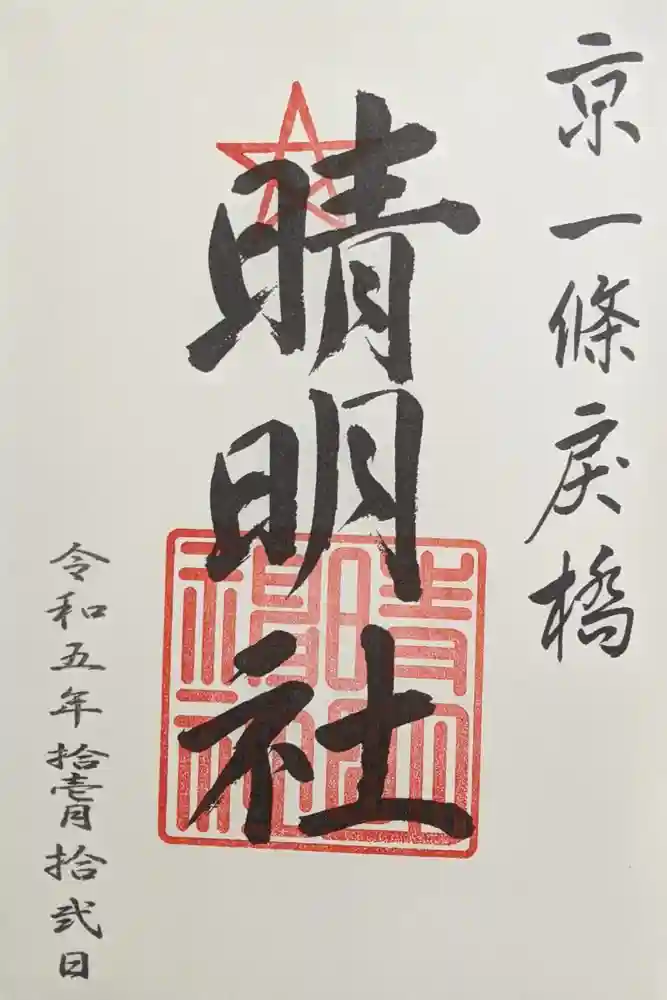 京一條戻橋
晴明社
晴明神社
令和五年拾壱月拾弐日